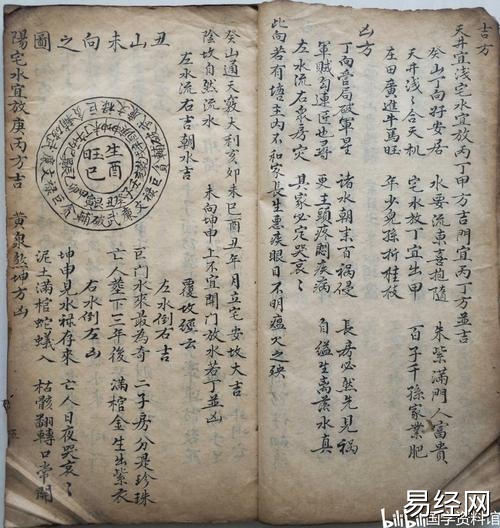 吉方
天井宜浅宅水宜放丙丁甲方吉門宜丙丁方並吉
癸山丁向好安居 水要流東喜抱隨 朱紫滿門人富貴
天井浅〻合天机 宅水放丁宜出甲 百子千孫家業肥
左田廣進牛馬旺 年少兒孫折桂枝
凶方
丁向當局破軍星 諸水朝來百禍侵 長房必然先見禍
軍賊勾連匠也尋 更主頭疼關疾病 自縊生离黃水真
左水流右衆房灾 其家必定哭哀〻
此向若有塘主内不和家長生患疾眼目不明瘟火之殃
丑山未向之圖
癸山通天竅大利亥卯未巳酉丑年月立宅安坟大吉
陰坟自然流水 未向坤申上不宜開門放水若丁並凶
左水流右朝水吉 覆坟經云
左水倒右吉
巨門水來最為奇 二子房分是珍珠
亡人塟下三年後 滿棺金生出紫衣
右水倒左凶
坤申見水祿存來 亡人日夜哭哀〻
泥土滿棺蛇蟻入 枯骸翻轉口常開
生酉
旺巳
陽宅水宜放庚丙方吉 黃泉坤方凶
bilibili 国学资料馆
易经网